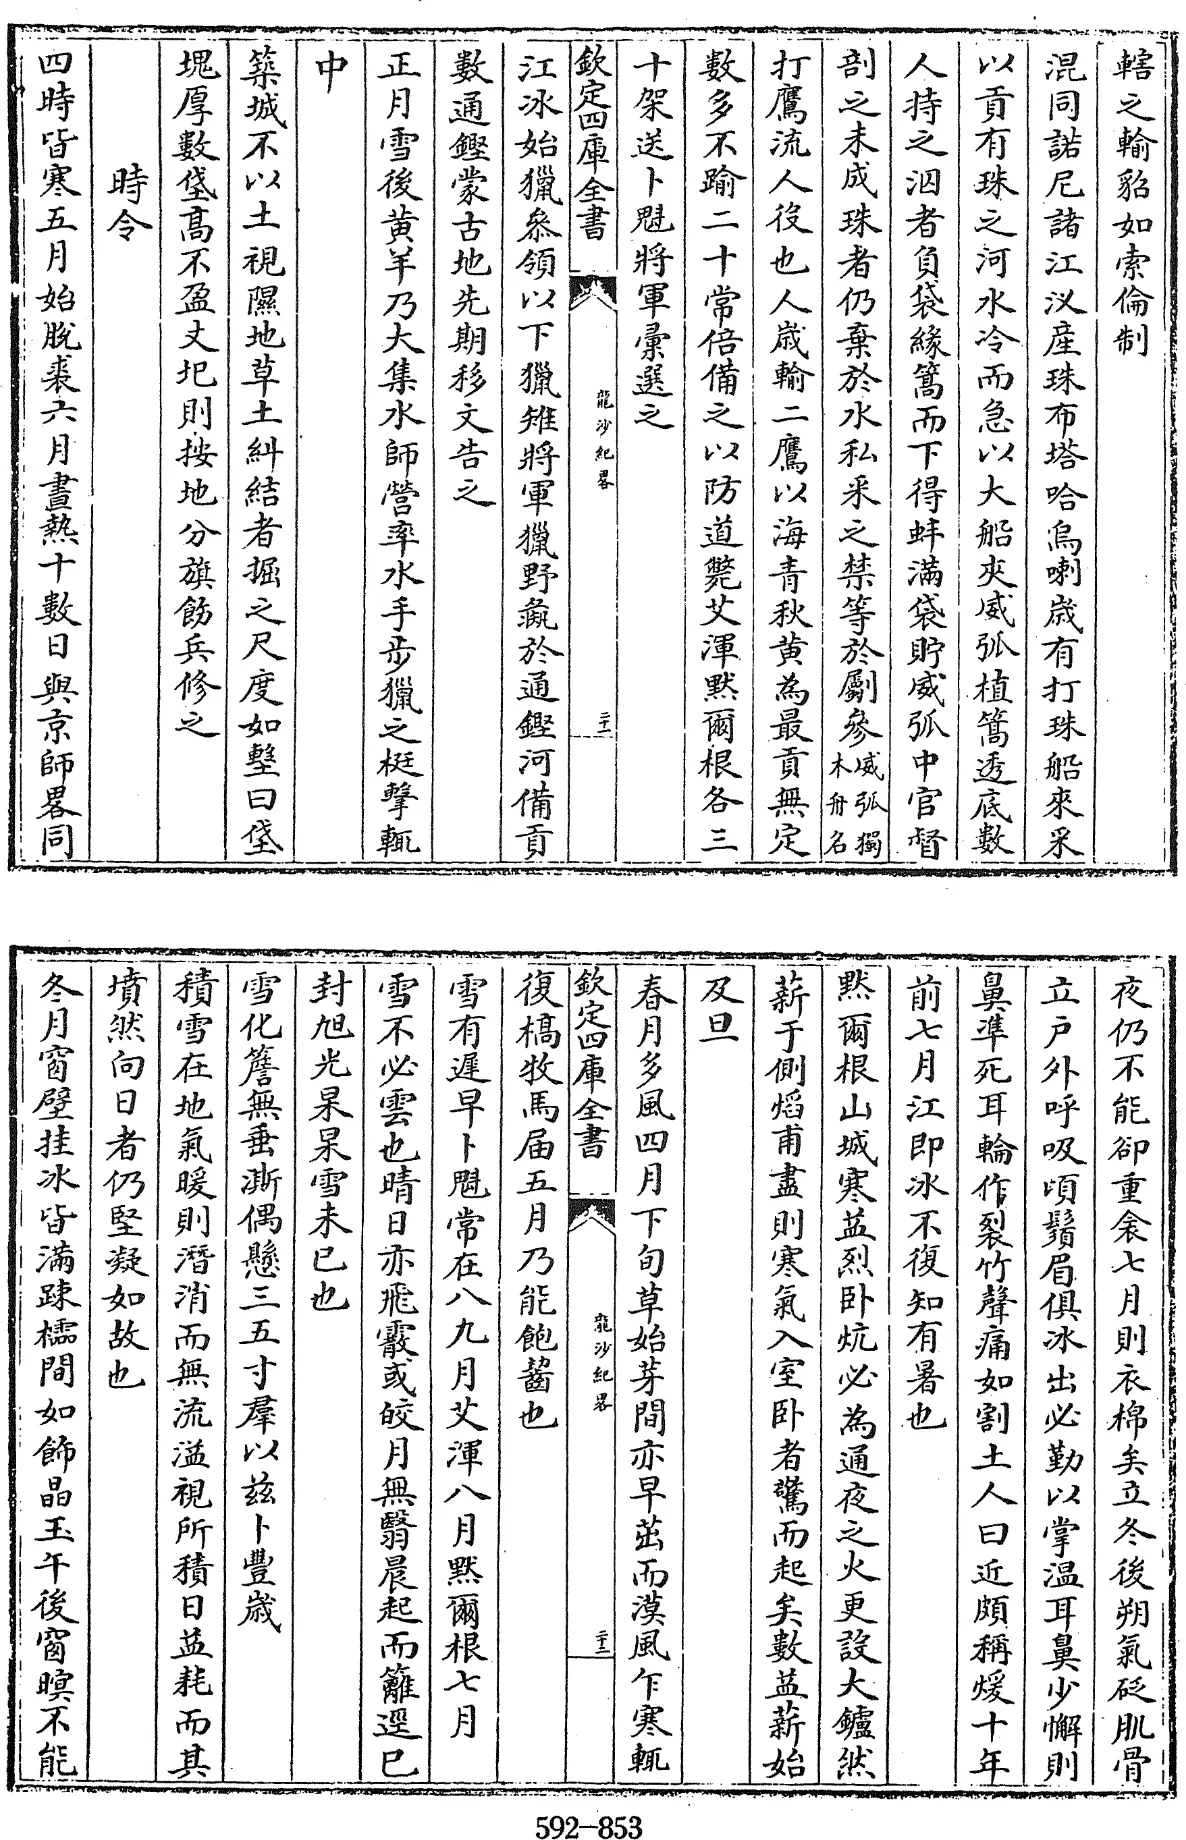 轄之輸貂如索倫制
混同諾尼諸江汊産珠布塔哈烏喇歲有打珠船來采
以貢有珠之河水冷而急以大船夾威弧植篙透底數
人持之泅者負袋緣篙而下得蚌滿袋貯威弧中官督
剖之未成珠者仍棄於水私采之禁等於劚參威弧獨木舟名
打鷹流人役也人歲輸二鷹以海青秋黃為最貢無定
數多不踰二十常倍備之以防道斃艾渾默爾根各三
十架送卜魁將軍彙選之
欽定四庫全書
龍沙紀畧
二十二
江冰始獵叅領以下獵雉將軍獵野彘於通鏗河備貢
數通鏗蒙古地先期移文告之
正月雪後黄羊乃大集水師營率水手步獵之梃擊輒
中
築城不以土視隰地草土糾結者掘之尺度如墼曰垡
塊厚數垡高不盈丈圯則按地分旗飭兵修之
時令
四時皆寒五月始脫裘六月晝熱十數日與京師畧同
夜仍不能卻重衾七月則衣棉矣立冬後朔氣砭肌骨
立户外呼吸頃鬚眉俱冰出必勤以掌温耳鼻少懈則
鼻凖死耳輪作裂竹聲痛如割土人曰近頗稱煖十年
前七月江即冰不復知有暑也
默爾根山城寒益烈卧炕必為通夜之火更設大鑪然
薪于側焰甫盡則寒氣入室卧者驚而起矣數益薪始
及旦
春月多風四月下旬草始芽間亦早茁而漠風乍寒輒
欽定四庫全書
龍沙紀畧
二十三
復槁牧馬届五月乃能飽齧也
雪有遲早卜魁常在八九月艾渾八月默爾根七月
雪不必雲也晴日亦飛霰或皎月無翳晨起而籬逕已
封旭光杲杲雪未已也
雪化簷無垂澌偶懸三五寸羣以兹卜豐歲
積雪在地氣暖則潛消而無流溢視所積日益耗而其
墳然向日者仍堅凝如故也
冬月窗壁挂冰皆滿踈櫺間如飾晶玉午後窗暝不能
592-853